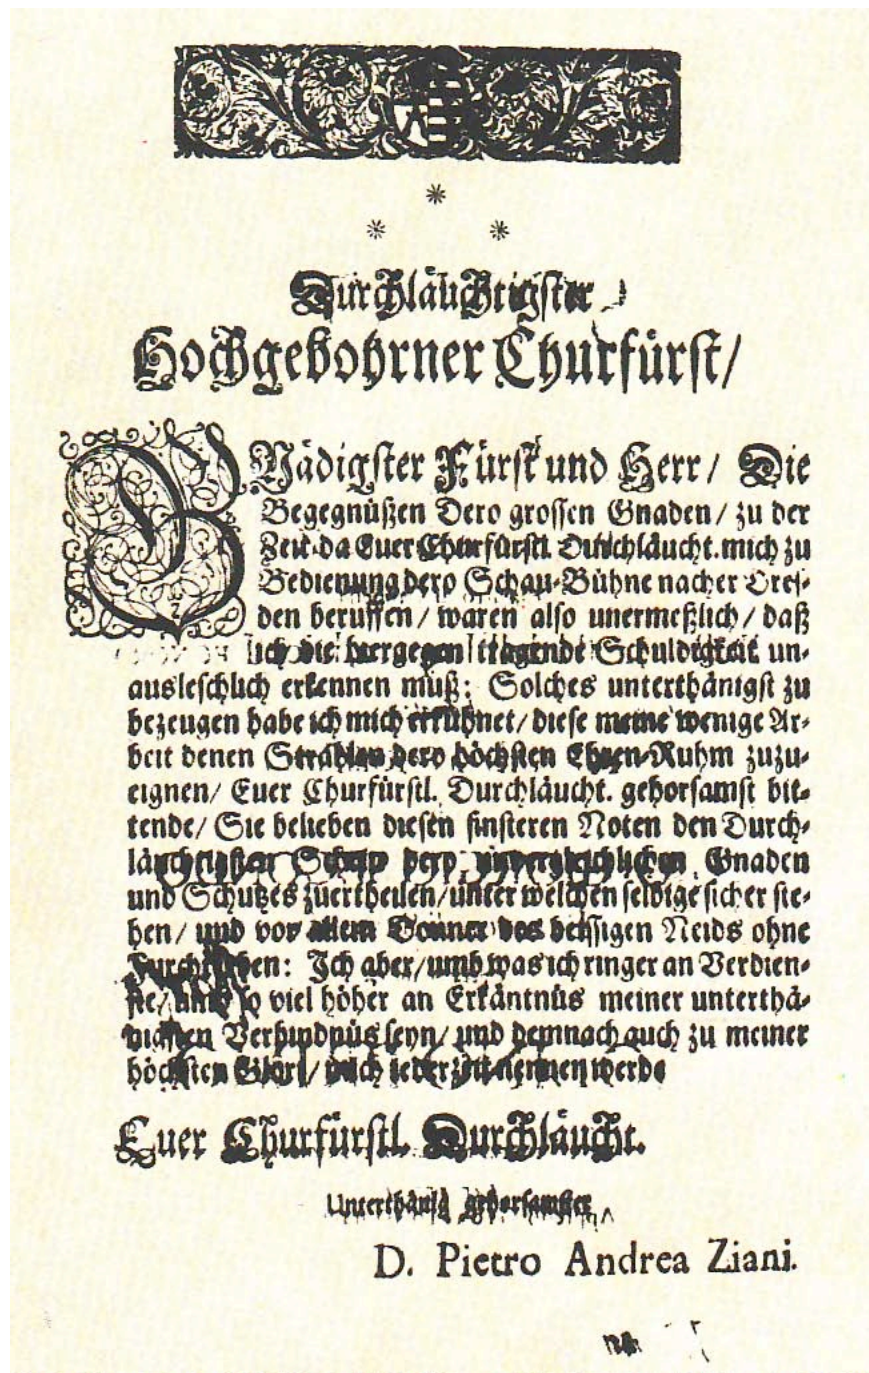 Durchläuchtigster
Hochgebohrner Churfürst/
GNädigster Fürst und Herr/ Die
Begegnüßen Dero grossen Gnaden/ zu der
Zeit da Euer Churfürstl. Durchläucht. mich zu
Bedienung dero Schau-Bühne nacher Dres-
den beruffen/ waren also unermeßlich/ daß
ich die hergegen tragende Schuldigkeit un-
ausleschlich erkennen muß: Solches unterthänigst zu
bezeugen habe ich mich erkühnet/ diese meine wenige Ar-
beit denen Strahlen dero höchsten Ehren-Ruhm zuzu-
eignen/ Euer Churfürstl. Durchläucht. gehorsamst bit-
tende/ Sie belieben diesen finsteren Noten den Durch-
läuchtigsten Schein dero unvergleichlichen Gnaden
und Schutzes zuertheilen/ unter welchen selbige sicher ste-
hen/ und vor allem Donner des beissigen Neids ohne
Furcht stehen: Ich aber/ umb was ich ringer an Verdien-
ste/ umb so viel höher an Erkäntnüs meiner unterthä-
nigsten Verbindnüs seyn/ und demnach auch zu meiner
höchsten Glori/ mich iederzeit nennen werde
Euer Churfürstl. Durchläucht.
Unterthänig gehorsamster
D. Pietro Andrea Ziani.